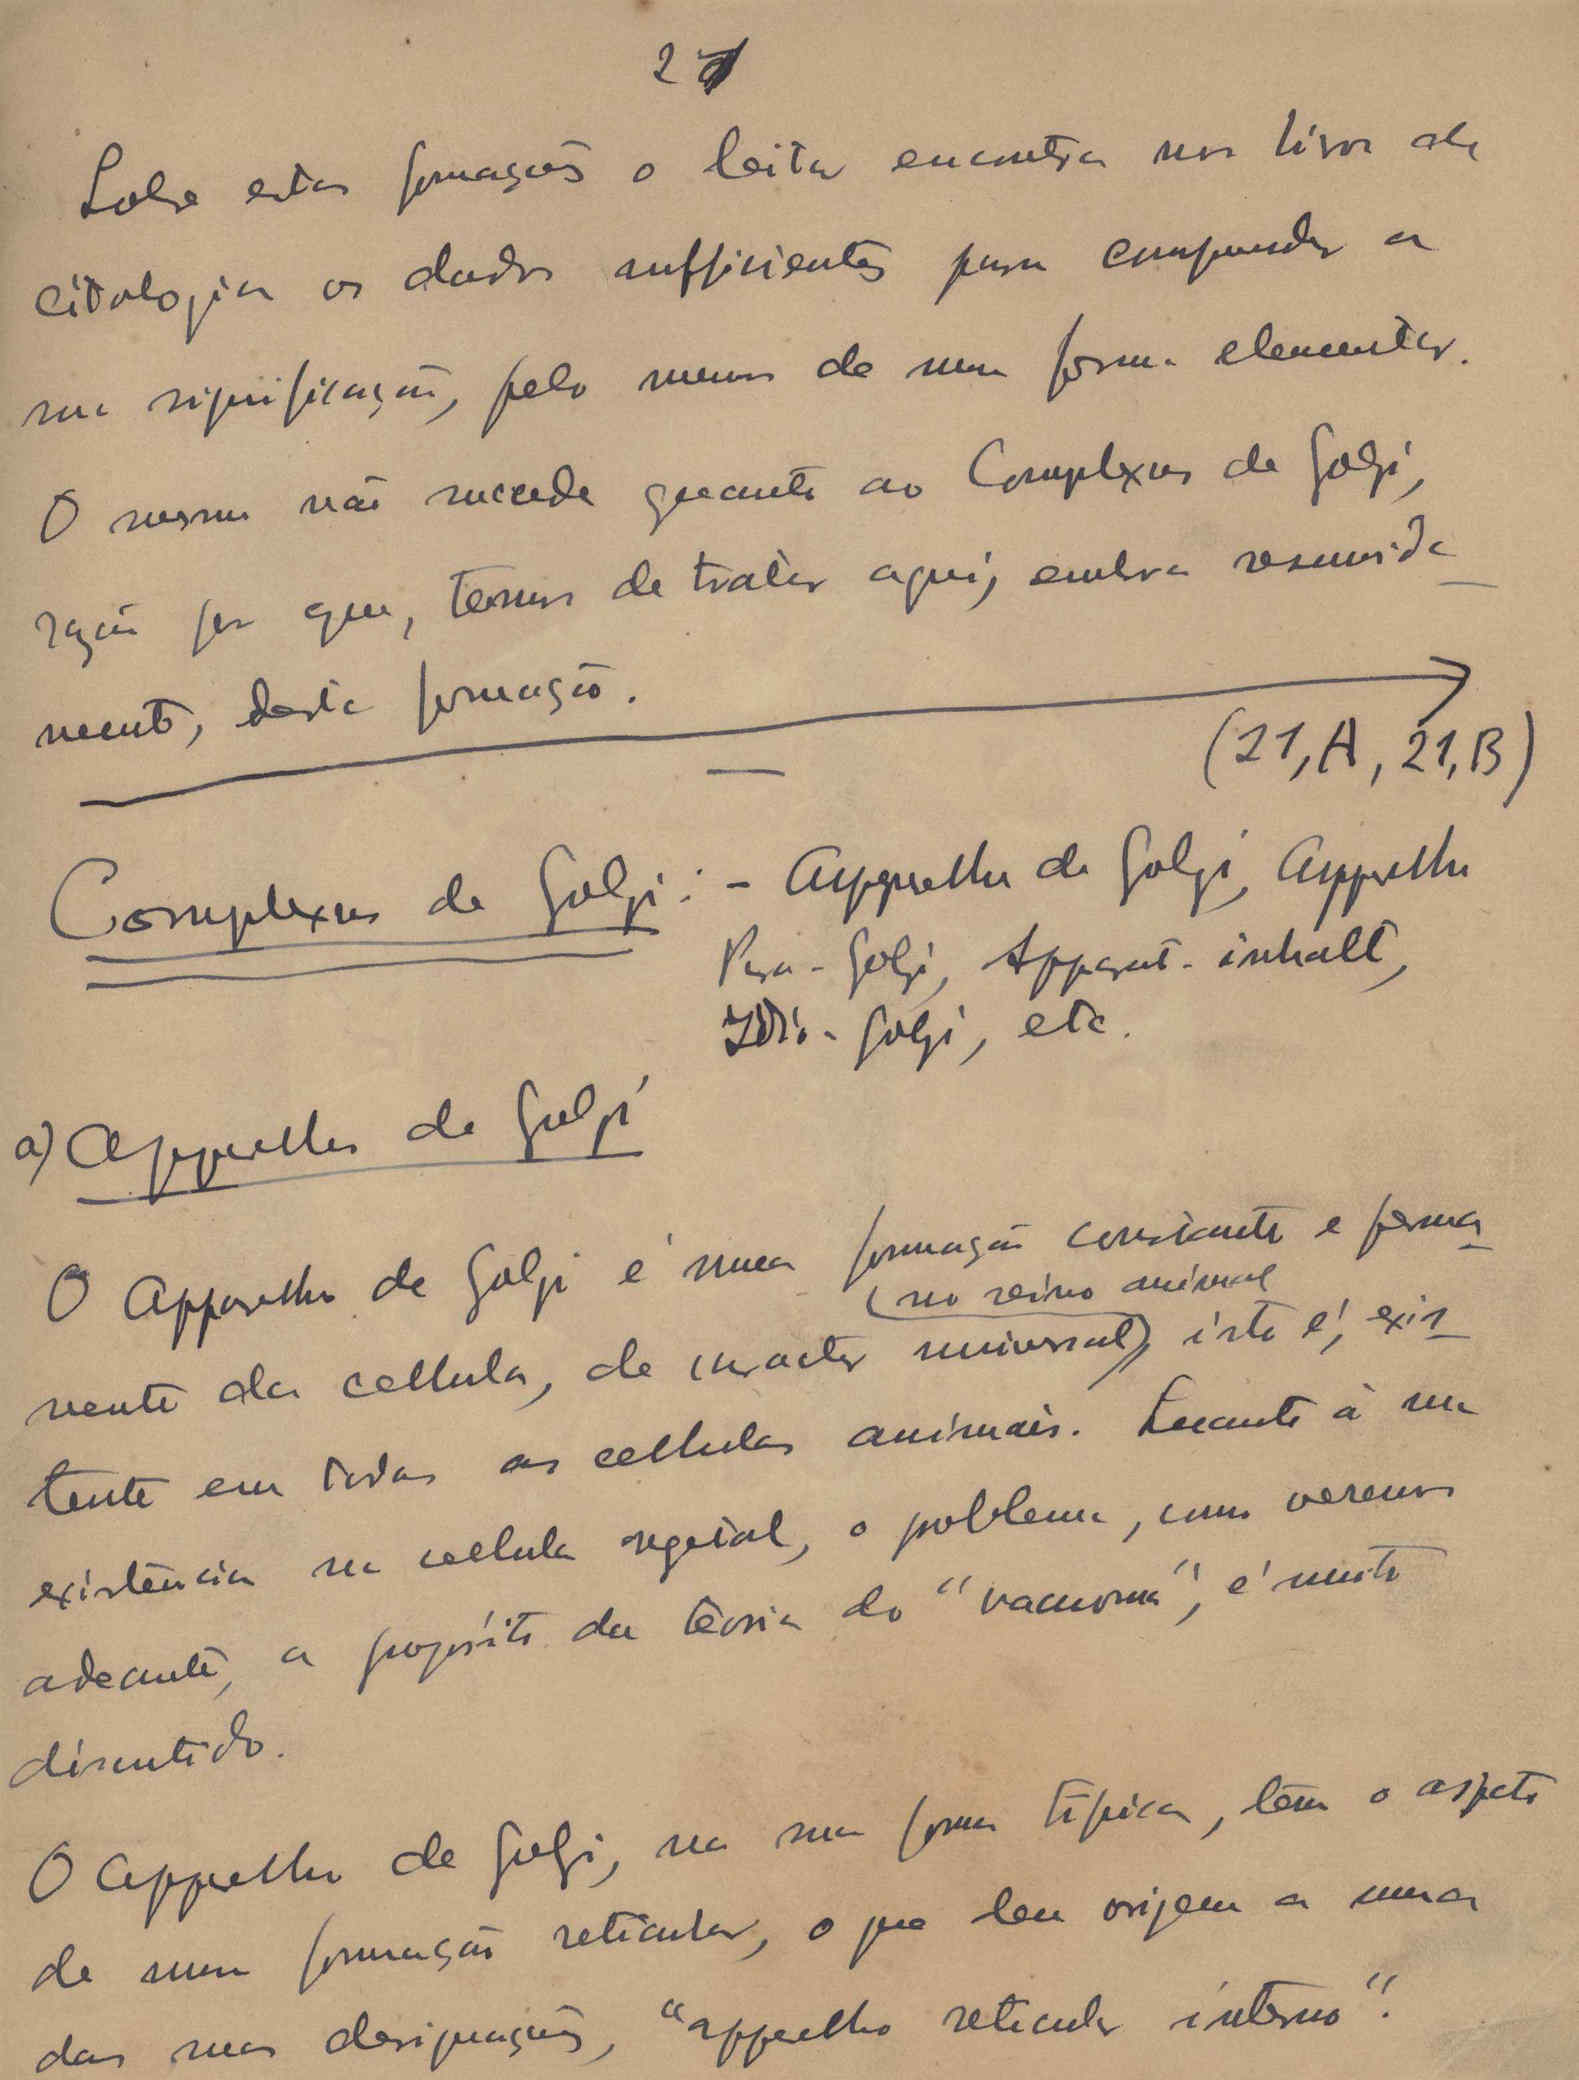 21
Sobre estas formações o leitor encontra nos livros de
citologia os dados sufficientes para comprender a
sua significação, pelo menos de uma forma elementar.
O mesmo não succede quanto ao Complexus de Golgi,
razão por que, temos de tratar aqui, embora resumida_
mente, desta formação.
(21,A, 21,B)
Complexus de Golgi: - Apparelho de Golgi, Apparelho
Para-Golgi, Apparat-inhalt,
Idio-Golgi, etc.
a) Apparelho de Golgi
O Apparelho de Golgi é uma formação constante e perma_
(no reino animal
nente da cellula, de caracter universal), isto é, exis_
tente em todas as cellulas animais. Quanto à sua
existência na cellula vegetal, o problema, como veremos
adeante, a propósito da teoria do "vacuoma", é muito
discutido.
O Apparelho de Golgi, na sua forma típica, tem o aspeto
de uma formação reticular, o que deu origem a uma
das suas designações, "apparelho reticular interno".